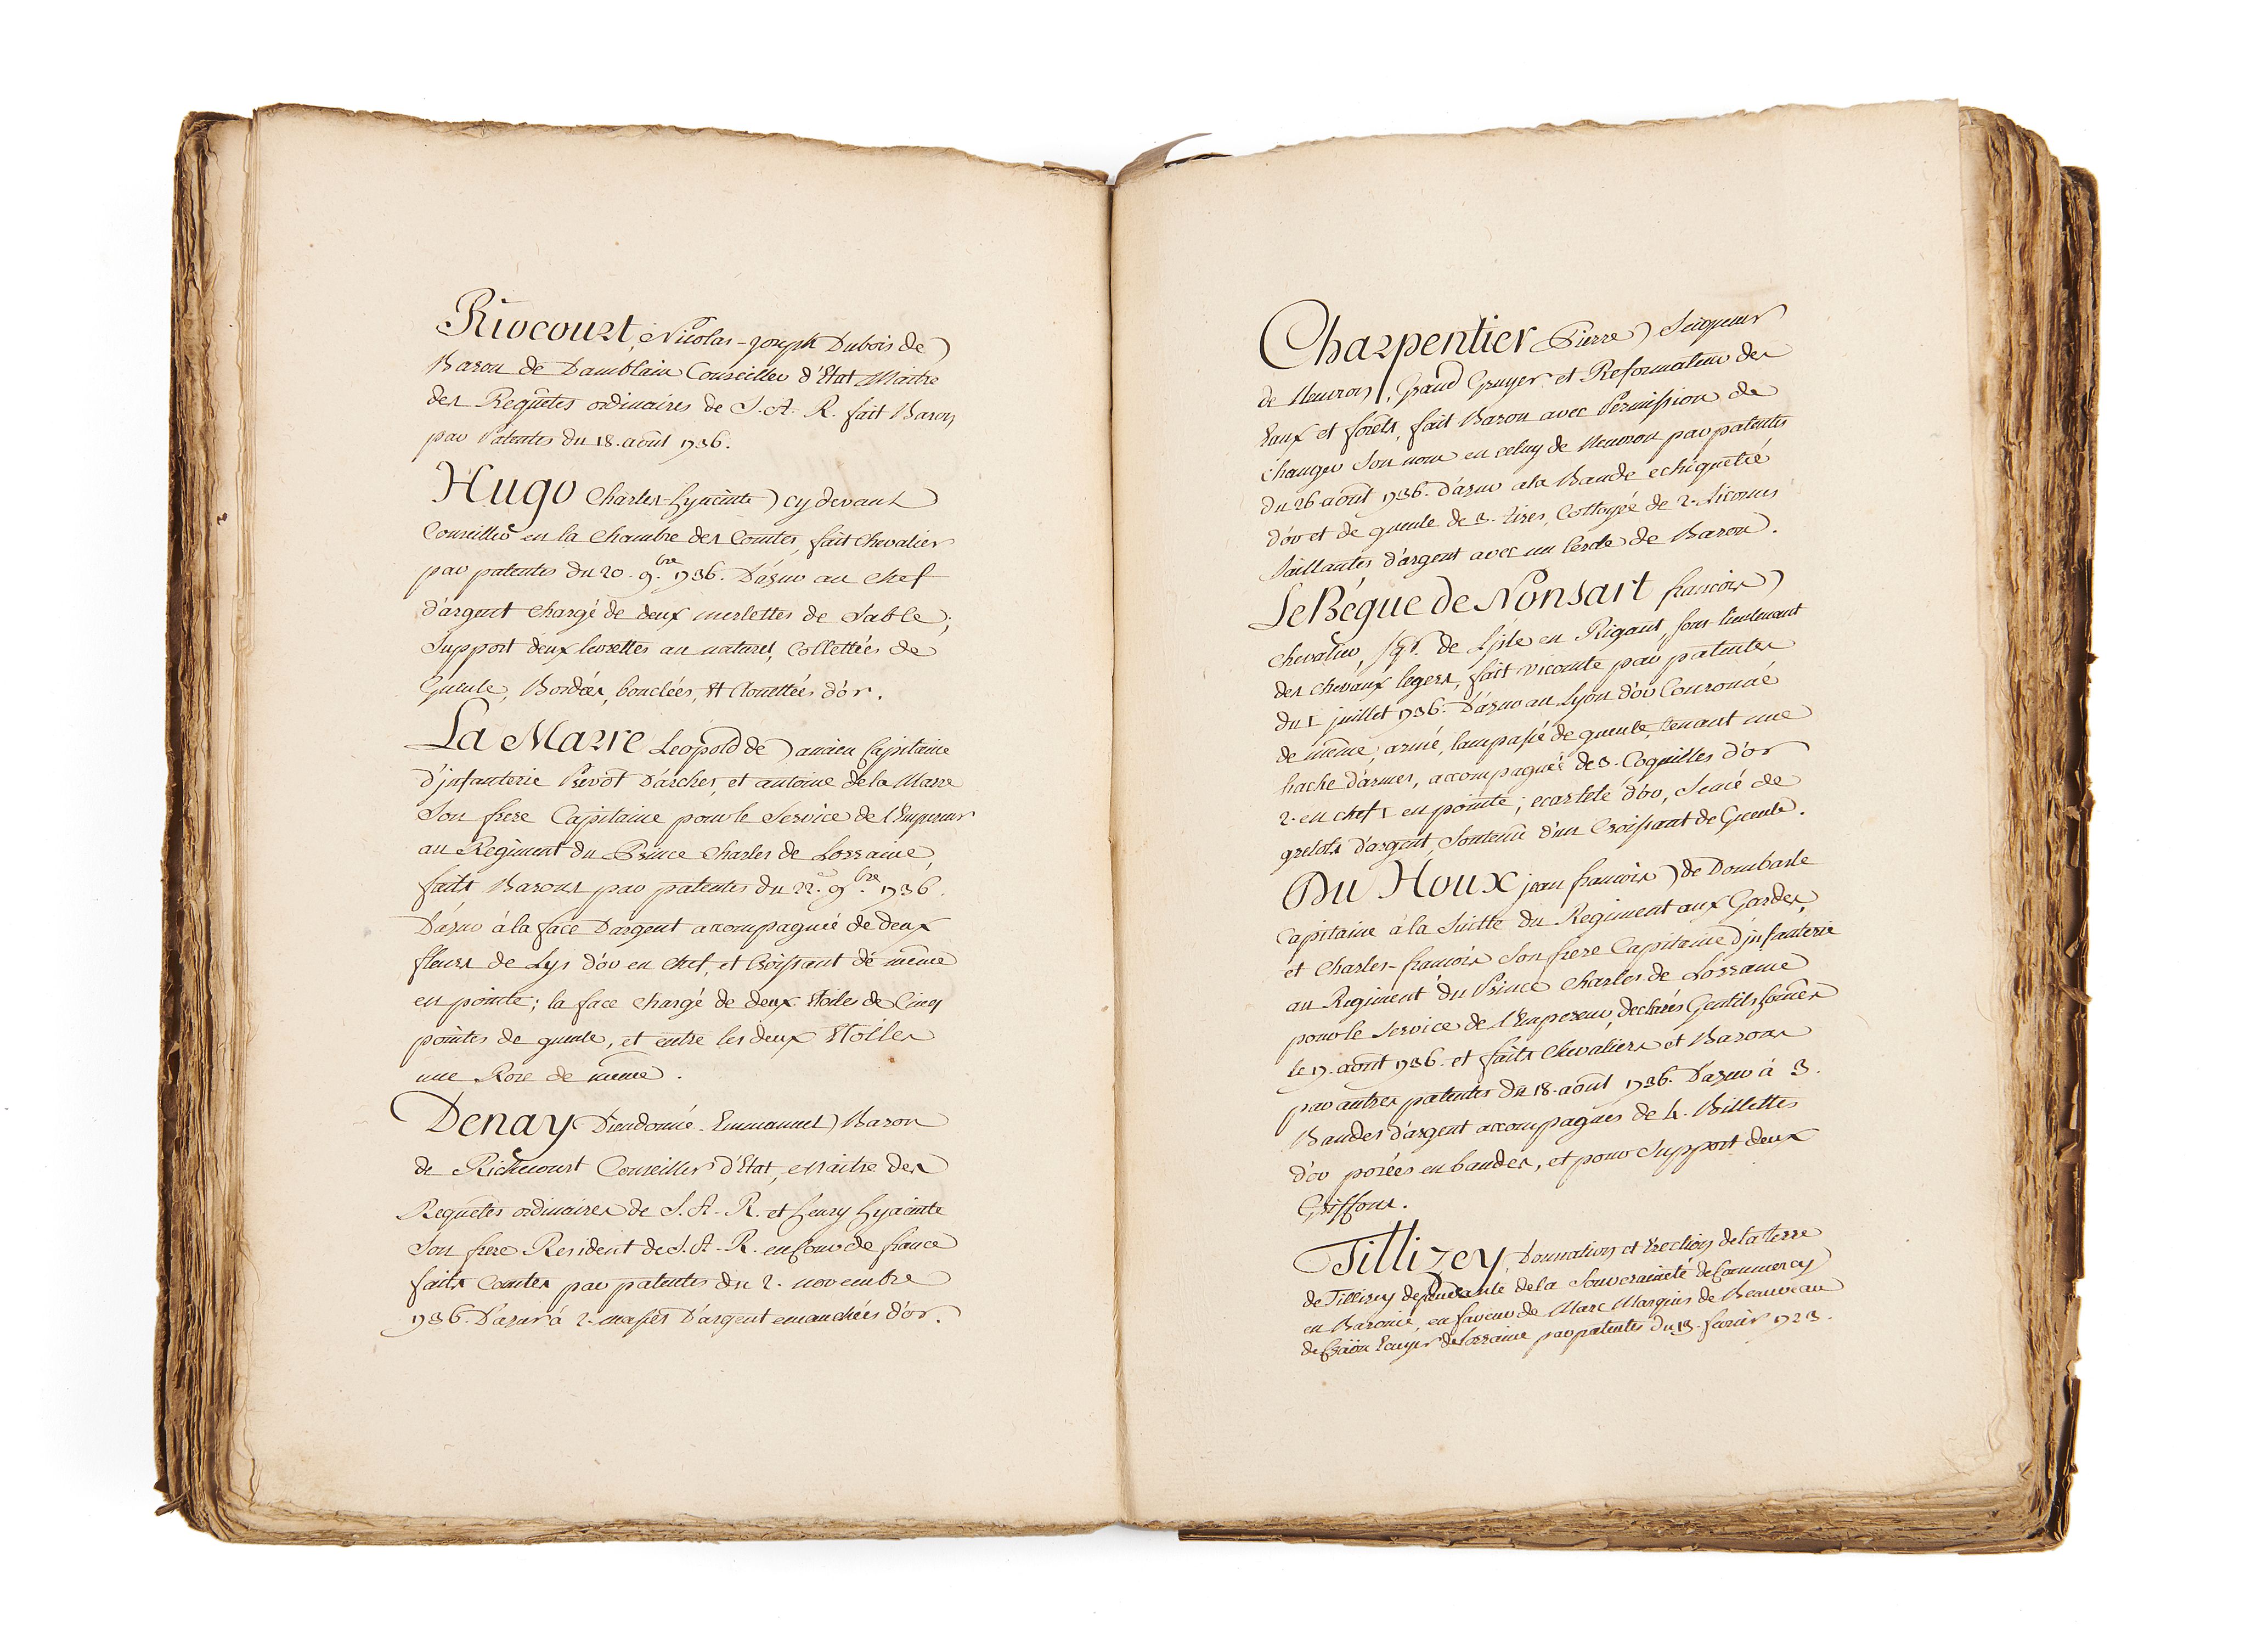 Riocourt, Nicolas-Joseph Dubois de)
Baron de Damblain Conseiller d'Etat Maitre
des Requêtes ordinaires de S.A.R. fait Baron
par Patentes du 18. août 1736.
Hugo Charles-hyacinte) cy devant
Conseiller en la Chambre des Comtes, fait Chevalier
par patentes du 20. 9.bre 1736. D'azur au chef
d'argent chargé de deux merlettes de Sable;
Support deux levrettes au naturel, Collettées de
Gueule, Bordées, bouclées, Et Clouettées d'or.
La Marre Leopold de) ancien Capitaine
d'jnfanterie Prevôt Darches, et antoine de la Marre
Son frere Capitaine pour le Service de l'Empereur
au Regiment du Prince Charles de Lorraine,
faits Barons par patentes du 22. 9.bre 1736.
D'azur à la face D'argent accompagnié de deux
fleurs de Lys d'or en chef, et Croissant de même
en pointe; la face chargé de deux Etoiles de Cinq
pointes de gueule, et entre les deux Etoilles
une Rose de même.
Denay Dieudonné-Emmanuel) Baron
de Richecourt Conseiller d'Etat, Maitre des
Requêtes ordinaires de S.A.R. et henry hyacinte
Son frere Resident de S.A.R. en Cour de france
faits Comtes par patentes du 2. novembre
1736. D'azur à 2. masses D'argent emanchées d'or.
Charpentier Pierre) Seigneur
de Neuvron, Grand Gruyer et Reformateur des
Eaux et forêts, fait Baron avec Permission de
changer Son nom en celuy de Neuvron par patentes
du 26. août 1736. d'azur à la Bande echiquetté
d'or et de gueule de 3. tires, Cottoyée de 2. Licornes
Saillantes d'argent avec un Cercle de Baron.
Le Bégue de Nonsart francois)
Chevalier, Sgr. de Lisle en Rigaut, sous-lieutenant
des chevaux legers, fait vicomte par patentes
du 1 juillet 1736. D'azur au Lyon d'or Couronné
de même, armé, lampassé de gueule, tenant une
hache d'armes, accompagné de 3. Coquilles d'or
2. en chef 1 en pointe; ecartelé d'or, Semé de
grelots d'argent, Soutenu d'un Croissant de Gueule.
Du Houx jean francois) de Dombasle
Capitaine à la Suitte du Regiment aux Gardes,
et Charles-francois Son frere Capitaine d'jnfanterie
au Regiment du Prince Charles de Lorraine
pour le Service de l'Empereur, declarés Gentilshomes
le 17. août 1736. et faits Chevaliers et Barons
par autres patentes du 18. août 1736. D'azur à 3.
Bandes d'argent accompagnes de 4. Billettes
d'or posées en bandes, et pour Support deux
Griffons.
Tillizey, Donnation et Erection de la terre
de Tillizey dependante de la Souveraineté de Commercy
en Baronie, en faveur de Marc Marquis de Beauveau
de Craon Ecuyer de Lorraine par patentes du 13. fevrier 1723.